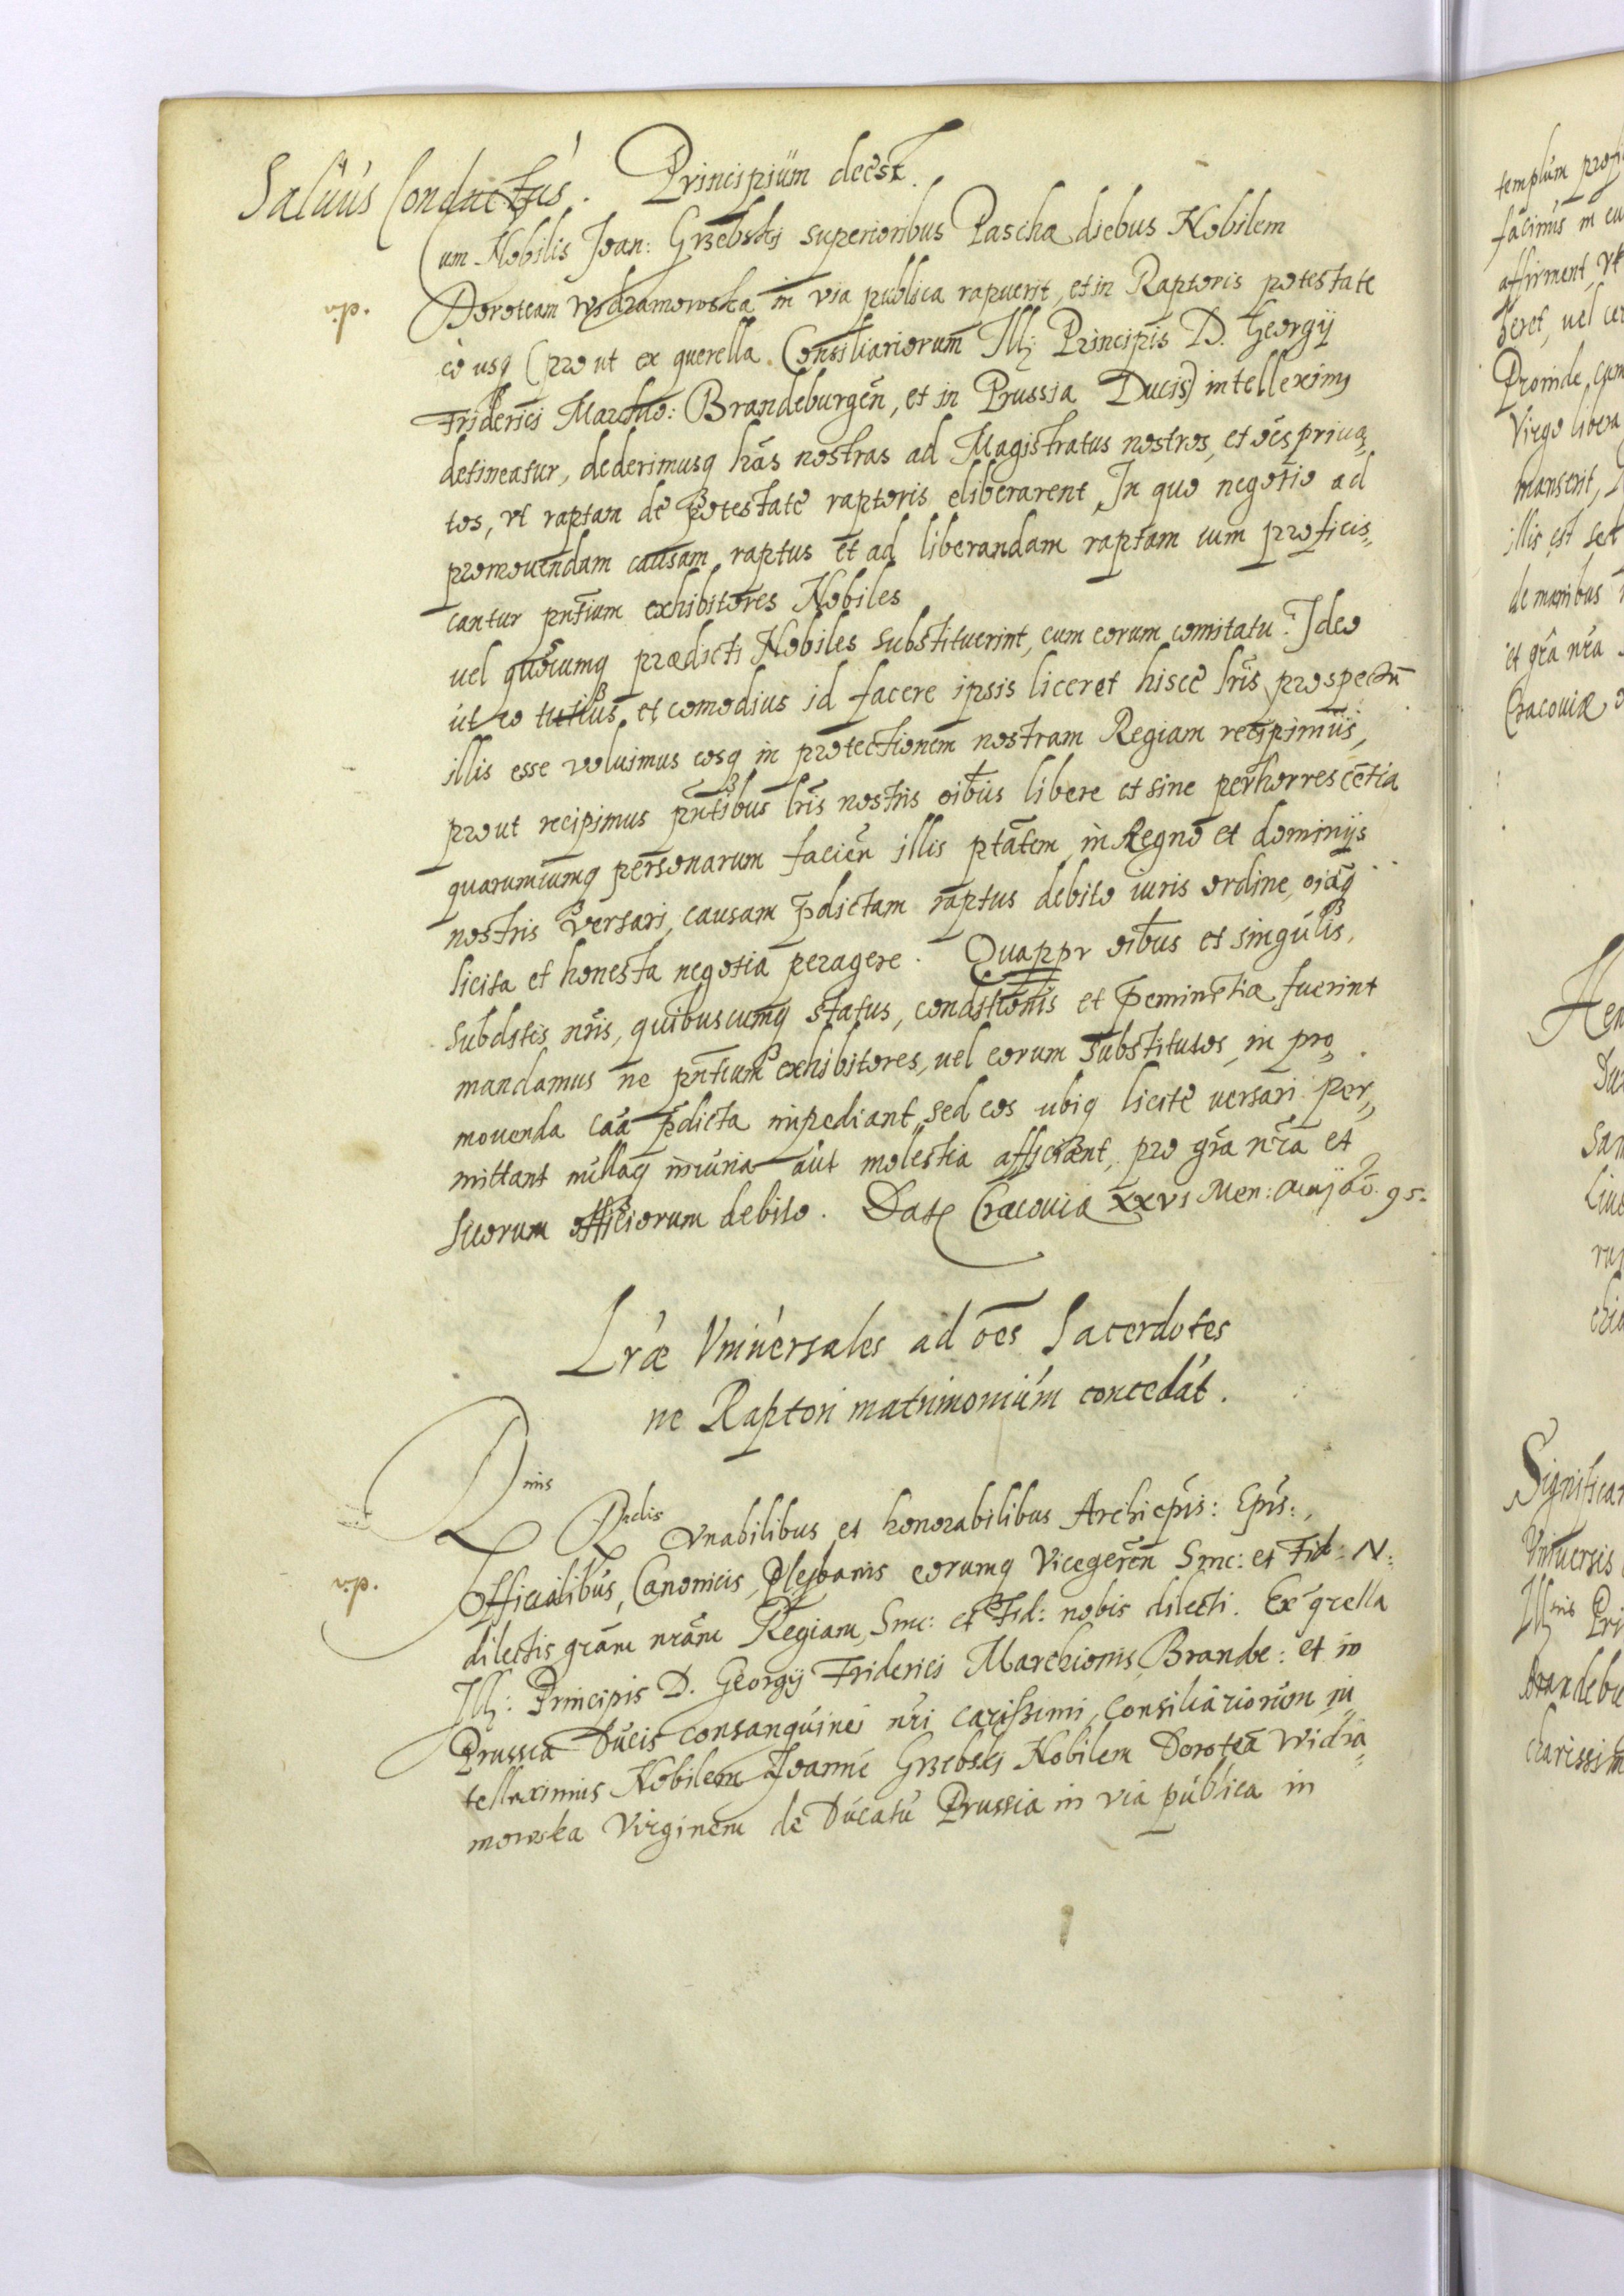 Saluus Conductus. Principium deest.
Cum Nobilis Joan: Grzebskj superioribus Pascha diebus Nobilem
Doroteam Widzamowska in via publica rapuerit, et in Raptoris potestate
eo usq (prout ex querella Consiliariorum Illi Principis D. Georgÿ
Friderici Marchio: Brandeburgen̄, et in Prussia Ducis) intelleximꝰ
detineatur, dederimusq l̄ras nostras ad Magistratus nostros, et oēs priua„
tos, vt raptam de potestate raptoris eliberarent, In quo negotio ad
promouendam causam raptus et ad liberandam raptam cum proficis„
cantur pn̄tium exhibitores Nobiles
uel quoscumq prædicti Nobiles substituerint, cum eorum comitatu. Ideo
ut eo tutius et comodius id facere ipsis liceret hisce l̄ris prospectū
illis esse voluimus eosq in protectionem nostram Regiam recipimus,
prout recipimus pn̄tibus l̄ris nostris oībus libere et sine perhorrescētia
quarumcumq personarum facien̄ illis p̄tātem in Regno et dominÿs
nostris versari, causam p̄dictam raptus debito iuris ordine, oīaq
licita et honesta negotia peragere. Quappr oībus et singulis,
subditis nr̄is, quibuscumq status, conditionis et p̄eminētiæ fuerint
mandamus ne pn̄tium exhibitores, uel eorum substitutos, in pro„
mouenda cāa p̄dicta impediant, sed eos ubiq licite uersari per„
mittant nullaq iniuria aut molestia afficiant, pro gr̄a nr̄a et
suorum officiorum debito. Dat Cracouia XXVI Men: Maij aō. 95.
Lr̄æ Vniuersales ad oēs Sacerdotes
ne Raptori matrimonium concedāt.
R mis
R ndis Vnabilibus et honorabilibus Archiep̄is: Ep̄is:,
Officialibus, Canonicis, Plebanis eorumq Vicegeren̄ Sinc: et Fid: N:
dilectis gr̄am nr̄am Regiam, Sinc: et Fid: nobis dilecti. Ex q̄rella
Ill: Principis D. Georgÿ Friderici Marchionis Brande: et in
Prussia Ducis consanguinei nr̄i carissimi, consiliariorum in„
telleximus Nobilem Joannē Grzebskj Nobilem Doroteā Widza„
mowska Virginem de Ducatu Prussia in via publica in